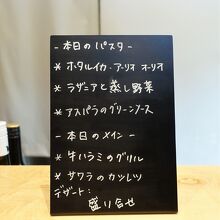 - 本日のパスタ -
* ホタルイカ・アーリオ オーリオ
* ラザニアと蒸し野菜
* アスパラのグリーンソース
- 本日のメイン -
* 牛ハラミのグリル
* サワラのカツレツ
デザート:
盛り合せ